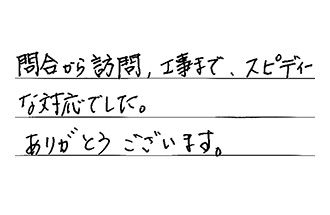 問合から訪問,工事まで、スピディー
な対応でした。
ありがとうございます。